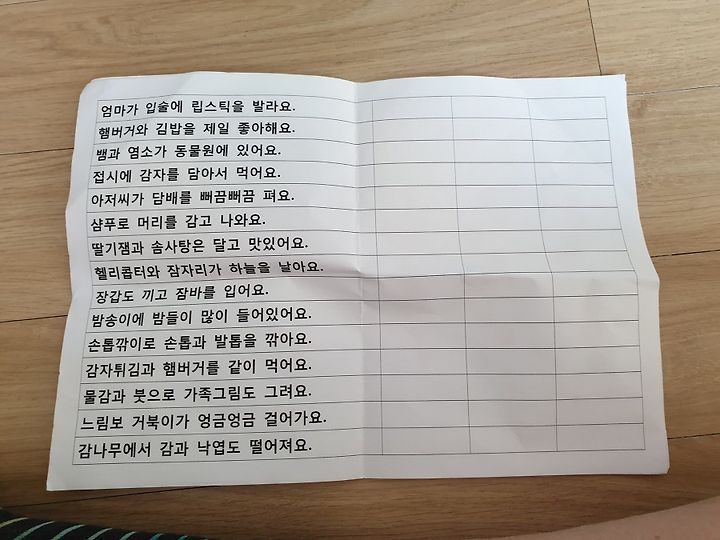 엄마가 입술에 립스틱을 발라요.
햄버거와 김밥을 제일 좋아해요.
뱀과 염소가 동물원에 있어요.
접시에 감자를 담아서 먹어요.
아저씨가 담배를 뻐끔뻐끔 펴요.
샴푸로 머리를 감고 나와요.
딸기잼과 솜사탕은 달고 맛있어요.
헬리콥터와 잠자리가 하늘을 날아요.
장갑도 끼고 잠바를 입어요.
밤송이에 밤들이 많이 들어있어요.
손톱깎이로 손톱과 발톱을 깎아요.
감자튀김과 햄버거를 같이 먹어요.
물감과 붓으로 가족그림도 그려요.
느림보 거북이가 엉금엉금 걸어가요.
감나무에서 감과 낙엽도 떨어져요.